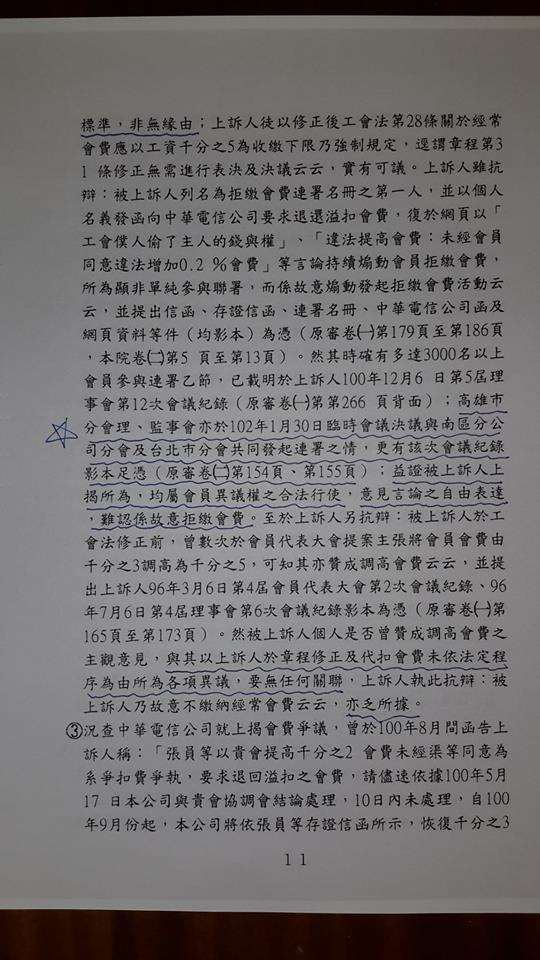 標準，非無緣由；上訴人徒以修正後工會法第28條關於經常
會費應以工資千分之5為收繳下限乃強制規定，逕謂章程第3
1 條修正無需進行表決及決議云云，實有可議。上訴人雖抗
辯：被上訴人列名為拒繳會費連署名冊之第一人，並以個人
名義發函向中華電信公司要求退還溢扣會費，復於網頁以「
工會僕人偷了主人的錢與權」、「違法提高會費：未經會員
同意違法增加0.2 %會費」等言論持續煽動會員拒繳會費，
所為顯非單純參與聯署，而係故意煽動發起拒繳會費活動云
云，並提出信函、存證信函、連署名冊、中華電信公司函及
網頁資料等件（均影本）為憑（原審卷㈠第179頁至第186頁
，本院卷㈡第5 頁至第13頁）。然其時確有多達3000名以上
會員參與連署乙節，已載明於上訴人100年12月6 日第5屆理
事會第12次會議紀錄（原審卷㈠第第266 頁背面）；高雄市
分會理、監事會亦於102年1月30日臨時會議決議與南區分公
司分會及台北市分會共同發起連署之情，更有該次會議紀錄
影本足憑（原審卷㈡第154頁、第155頁）；益證被上訴人上
揭所為，均屬會員異議權之合法行使，意見言論之自由表達
，難認係故意拒繳會費。至於上訴人另抗辯：被上訴人於工
會法修正前，曾數次於會員代表大會提案主張將會員會費由
千分之3調高為千分之5，可知其亦贊成調高會費云云，並提
出上訴人96年3月6日第4屆會員代表大會第2次會議紀錄、96
年7月6日第4屆理事會第6次會議紀錄影本為憑（原審卷㈠第
165頁至第173頁）。然被上訴人個人是否曾贊成調高會費之
主觀意見，與其以上訴人於章程修正及代扣會費未依法定程
序為由所為各項異議，要無任何關聯，上訴人執此抗辯：被
上訴人乃故意不繳納經常會費云云，亦乏所據。
③況查中華電信公司就上揭會費爭議，曾於100年8月間函告上
訴人稱：「張員等以貴會提高千分之2 會費未經渠等同意為
系爭扣費爭執，要求退回溢扣之會費，請儘速依據100年5月
17 日本公司與貴會協調會結論處理，10日內未處理，自100
年9月份起，本公司將依張員等存證信函所示，恢復千分之3
11